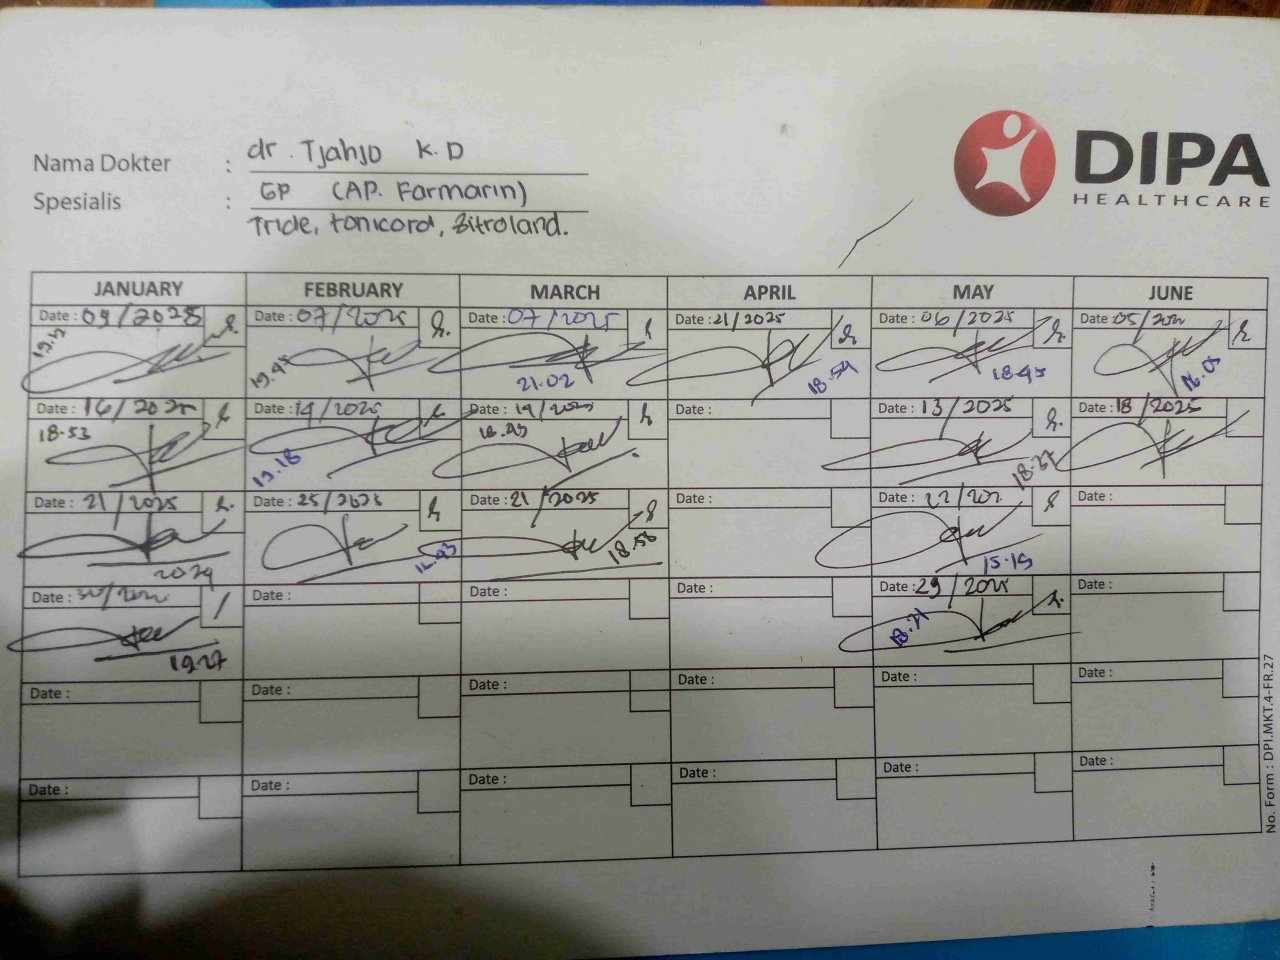 DIPA
HEALTHCARE
Nama Dokter : dr. Tjahjo K.D
Spesialis : GP (AP. Farmarin)
Tride, Tonicord, Zitroland.
JANUARY FEBRUARY MARCH APRIL MAY JUNE
Date : 09/2025 Date : 07/2025 Date : 07/2025 Date : 21/2025 Date : 06/2025 Date : 05/
21.02 18.54 18.45 16.05
Date : 16/2025 Date : 14/2025 Date : 14/2025 Date : Date : 13/2025 Date : 18/2025
18.53 19.18 18.27
Date : 21/2025 Date : 25/2025 Date : 21/2025 Date : Date : 22/ Date :
18.58 15.19
Date : 30/ Date : Date : Date : Date : 29/2025 Date :
19.27 18.21
Date : Date : Date : Date : Date : Date :
Date : Date : Date : Date : Date : Date :
No. Form : DPI.MKT.4-FR.27